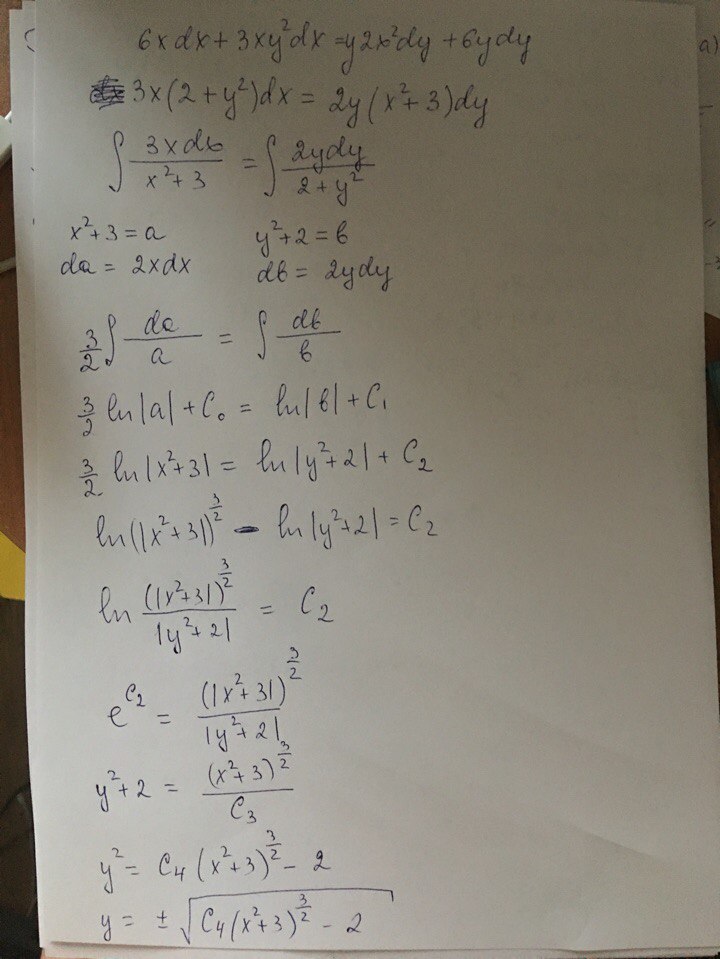 6xdx + 3xy²dx = y2x²dy + 6ydy
3x(2 + y²)dx = 2y(x² + 3)dy
∫ 3xdx / (x² + 3) = ∫ 2ydy / (2 + y²)
x² + 3 = a    y² + 2 = b
da = 2xdx    db = 2ydy
3/2 ∫ da / a = ∫ db / b
3/2 ln|a| + C₀ = ln|b| + C₁
3/2 ln|x² + 3| = ln|y² + 2| + C₂
ln(|x² + 3|)^(3/2) - ln|y² + 2| = C₂
ln (|x² + 3|)^(3/2) / |y² + 2| = C₂
e^(C₂) = (|x² + 3|)^(3/2) / |y² + 2|
y² + 2 = (x² + 3)^(3/2) / C₃
y² = C₄(x² + 3)^(3/2) - 2
y = ± √(C₄(x² + 3)^(3/2) - 2)